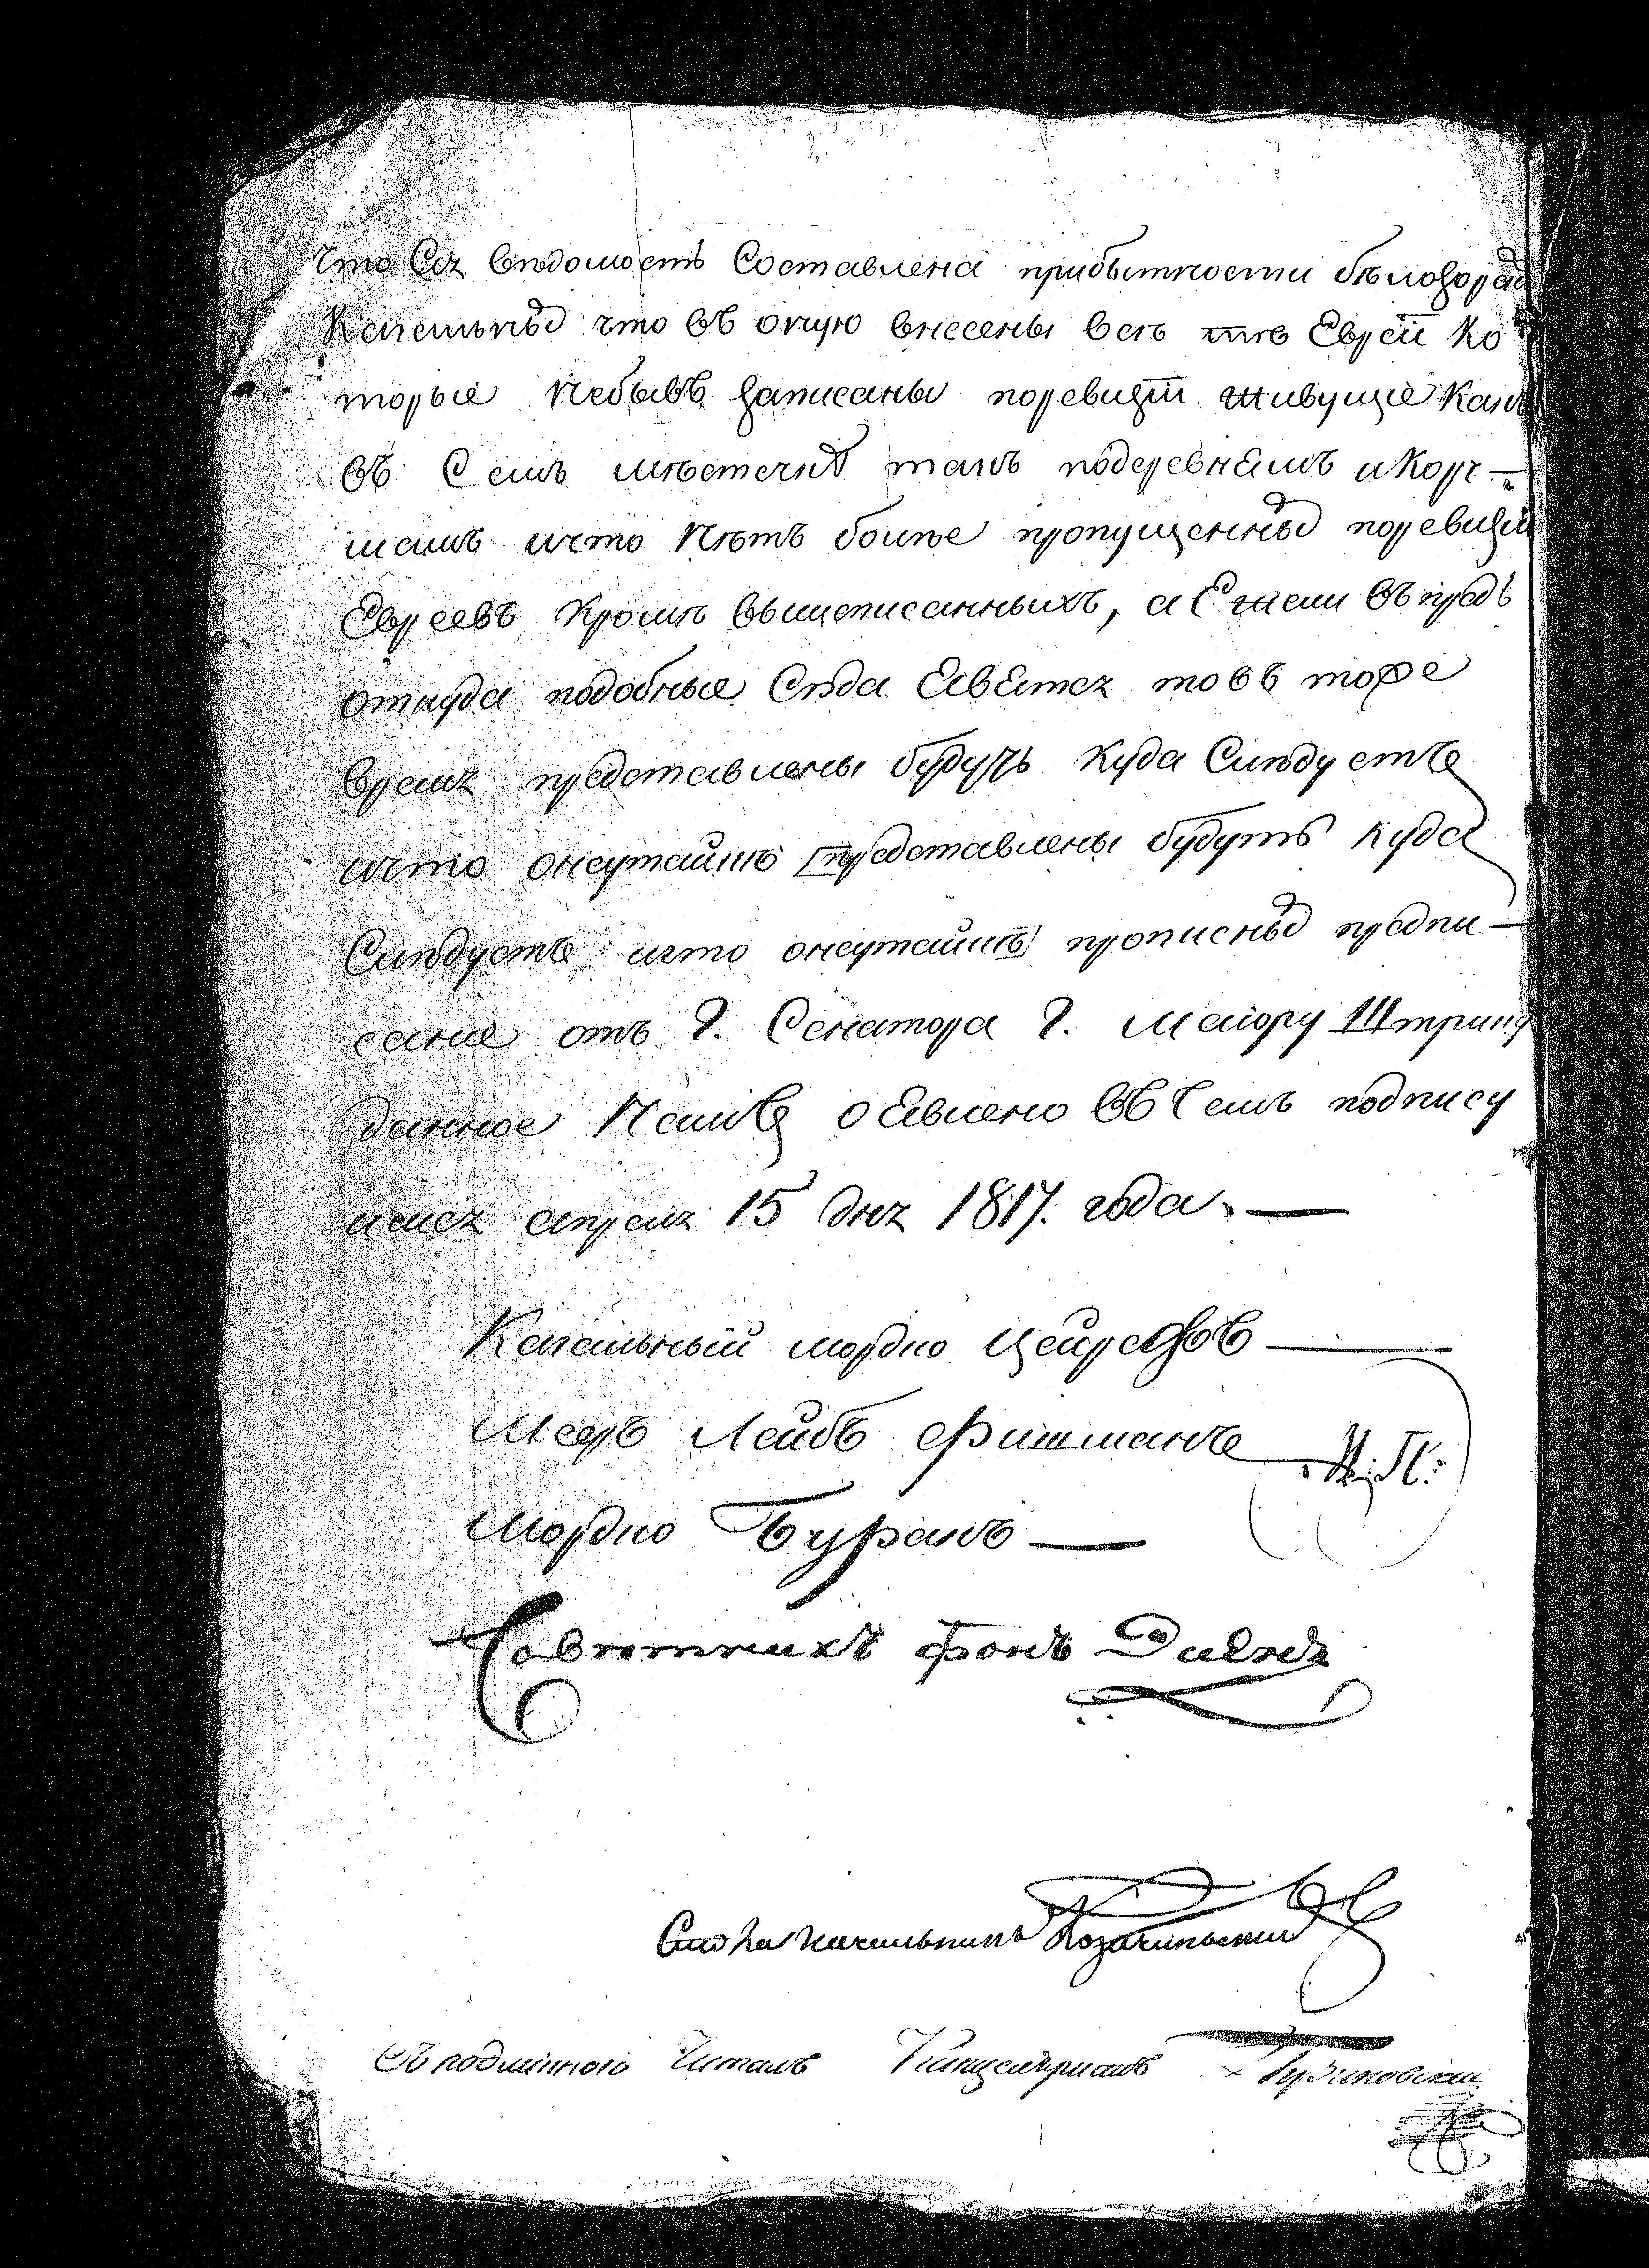 Что Сія вѣдомость Составлена прибытности бѣлогорад
Кагальныхъ что въ оную внесены всѣ тѣ Евреи Ко
торые Небывъ записаны поревизіи живущіе Какъ
въ Семъ мѣстечкѣ такъ подеревнямъ иКорч-
мамъ ичто Нѣтъ более пропущенныхъ поревизіи
Евреевъ Кромѣ вышеписанныхъ, а Ежели въпредь
откуда подобные Сюда Евятся товъ тоже
время представлены будучъ Куда Слѣдуетъ
ичто онеутайкѣ представлены будутъ Куда
Слѣдуетъ ичто онеутайкѣ прописныхъ предпи-
сание отъ Г. Сенатора Г. Маіору
данное Намъ оЕвлено въ Семъ подпису
емся апреля 15 дня 1817. года.
Кагальный мордко
Мееръ Лейбъ Фишманъ
Мордко
Совѣтникъ фонъ
Столоначальникъ
Съ подлиннымъ Читалъ Канцеляристъ